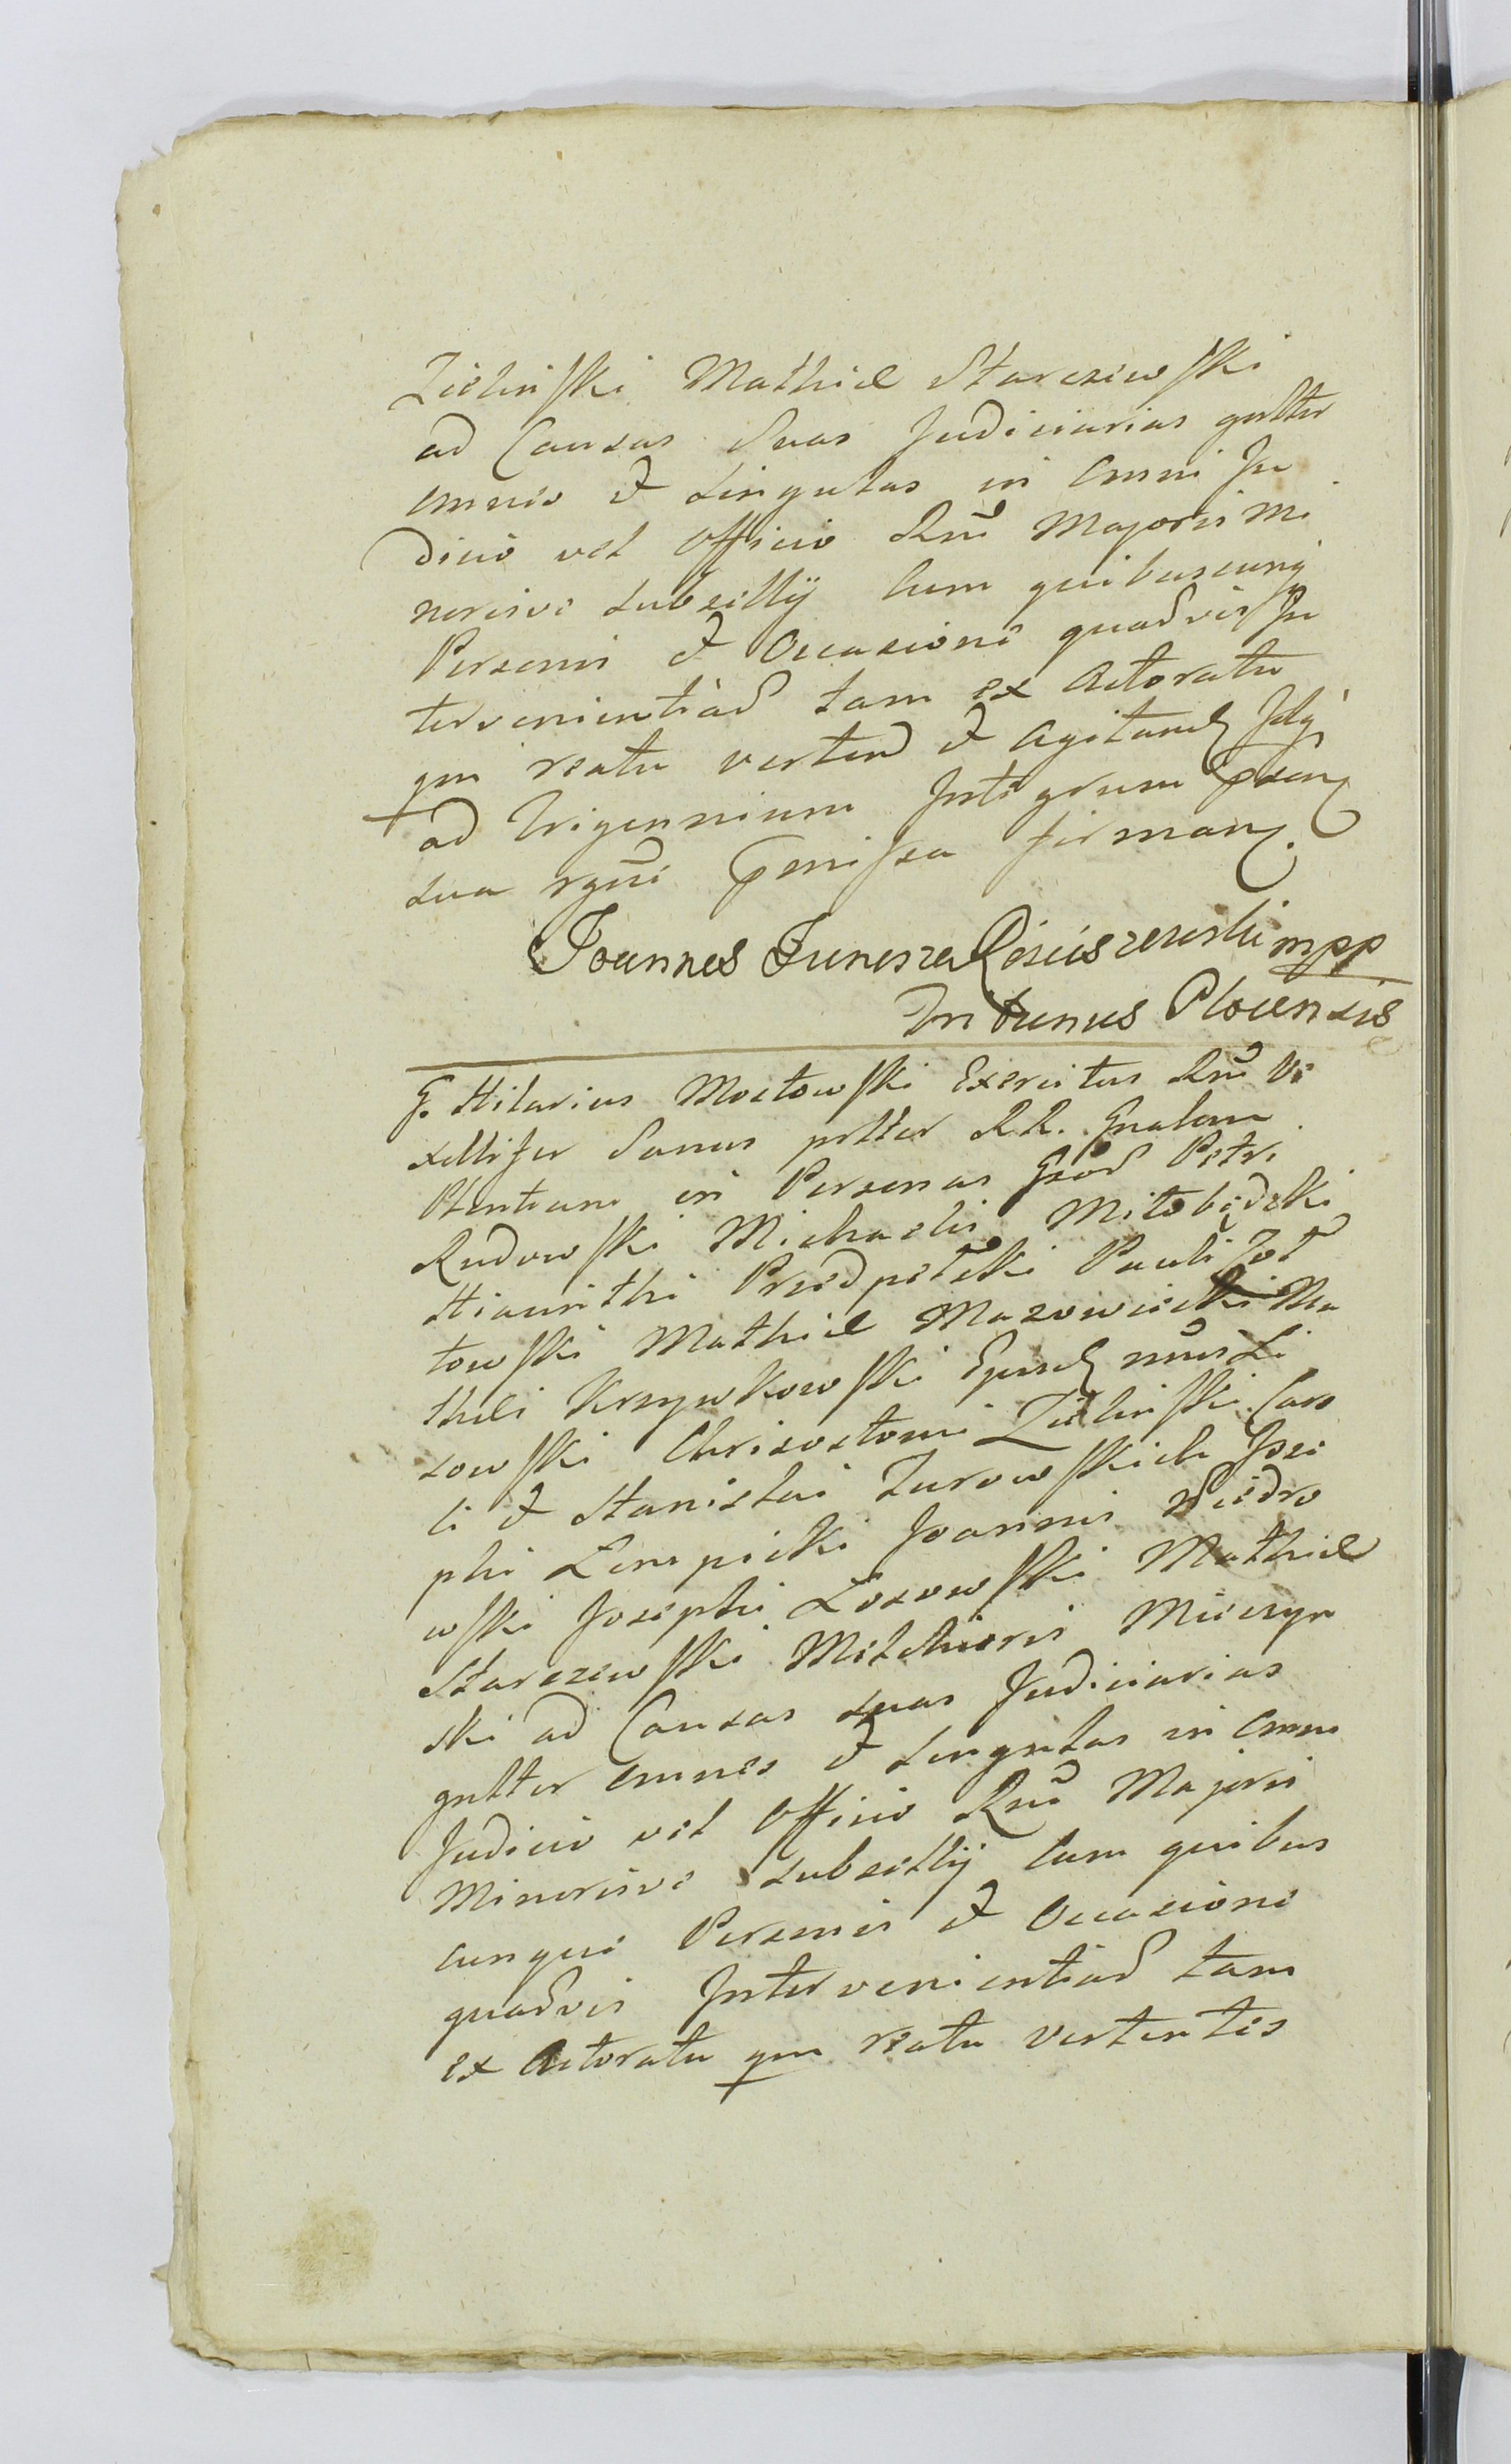 Zieliński Mathiæ Starczewski
ad Causas Suas Judiciarias gnlter
omnes et singulas in omni Ju
dicio vel Officio Rni Majoris Mi
norisve subsellij Cum quibuscunq
Personis et Occasione quadvis In
tervenientiad tam ex Actoratu
qm reatu verten et agitand Idq
ad Trigennium Inte grum
sua rgni firman.
Joannes Junosza Rościszewski mpp
Tribunus Plocensis
G. Hilarius Mostowski Exercitus Rni Ve
xillifer Sanus prtter RR. Gnalem
Plentiam in Personas Gsod Petri
Rudowski Michaelis Miłobędzki
Hiacinthi Przedpełski Pauli Zot
towski Mathiæ Mazowiecki Ma
thæi Krzywkowski Li
sowski Chrisostomi Zieliński Caro
li et Stanislai Zurowskich Jose
phi Lempicki Joannis Niedro
wski Josephi Lossowski Mathiæ
Starczewski Melchioris Mieczyn
ski ad Causas suas Judiciarias
gnlter omnes et singulas in omni
Judicio vel Officio Rni Majoris
Minorisve subsellij Cum quibus
cunque Personis et Occasione
quadvis Intervenientiad tam
ex Actoratu qm reatu vertentes